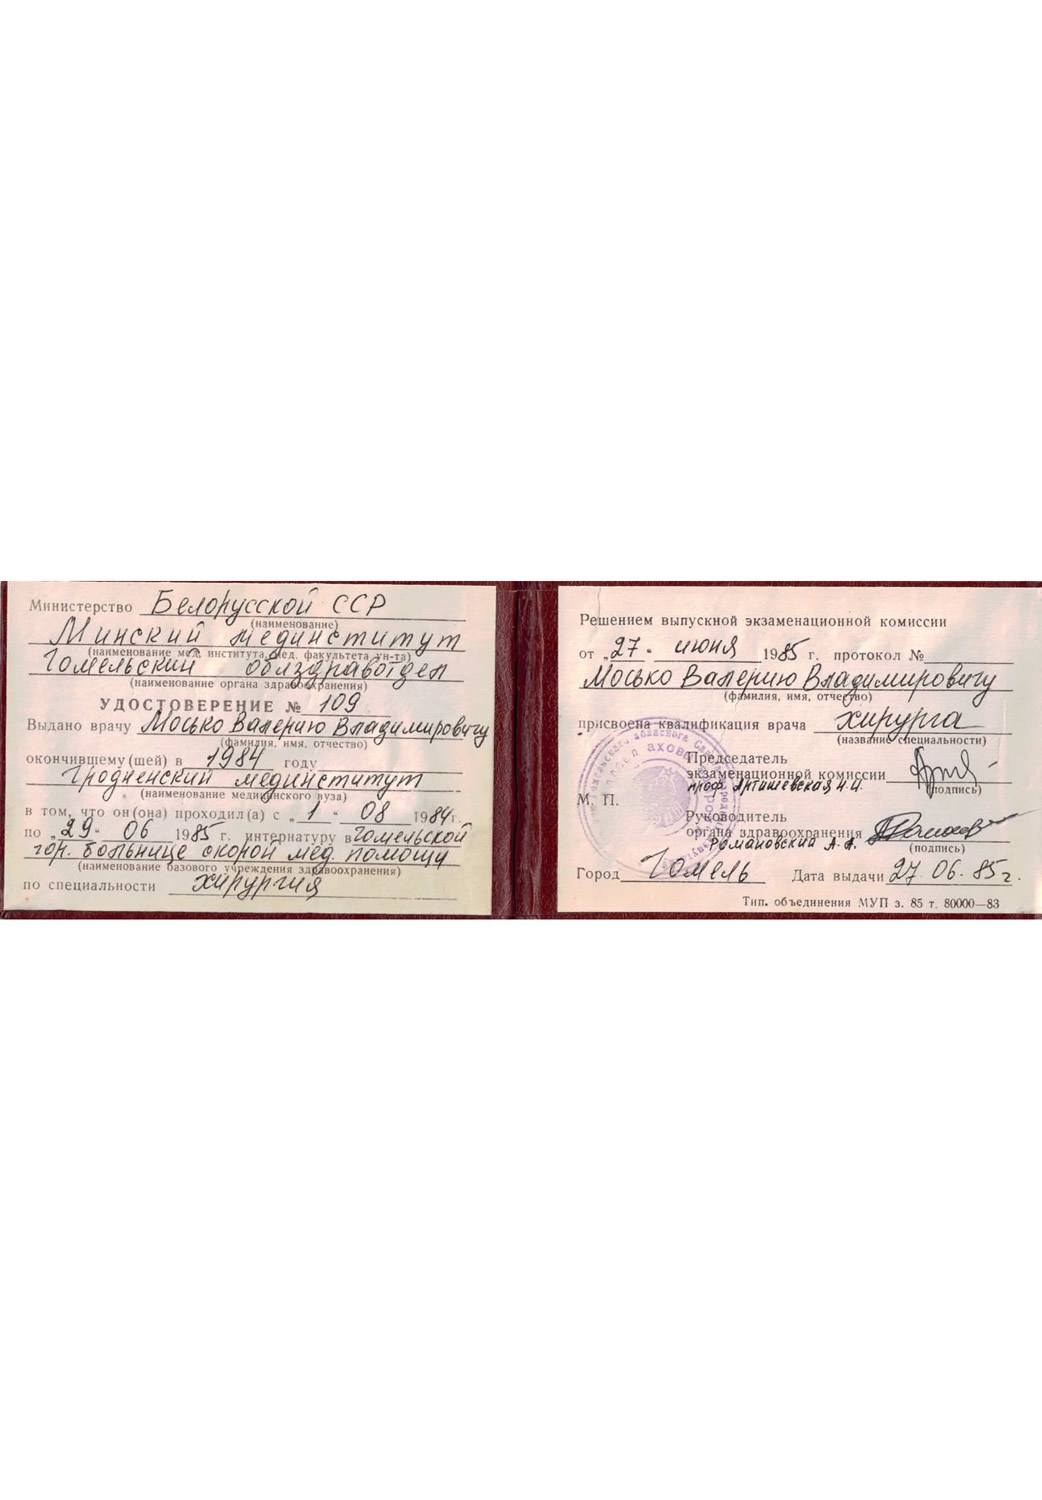 Министерство Белорусской ССР
(наименование)
Минский мединститут
(наименование мед. института, мед. факультета ун-та)
Гомельский облздравотдел
(наименование органа здравоохранения)
УДОСТОВЕРЕНИЕ № 109
Выдано врачу Мосько Валерию Владимировичу
(фамилия, имя, отчество)
окончившему (шей) в 1984 году
Гродненский мединститут
(наименование медицинского вуза)
в том, что он (она) проходил(а) с „1" 08 1984г.
по „29" 06 1985 г. интернатуру в Гомельской
гор. больнице скорой мед. помощи
(наименование базового учреждения здравоохранения)
по специальности хирургия
Решением выпускной экзаменационной комиссии
от „27" июня 1985 г. протокол №
Мосько Валерию Владимировичу
(фамилия, имя, отчество)
присвоена квалификация врача хирурга
(название специальности)
Председатель
экзаменационной комиссии
проф. Арташевская Н.И.
(подпись)
М. П.
Руководитель
органа здравоохранения
Романовский А. А.
(подпись)
Город Гомель Дата выдачи 27 06. 85г.
Тип. объединения МУП з. 85 т. 80000—83